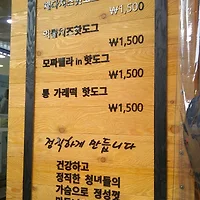 ₩1,500
₩1,500
모짜렐라 in 핫도그
₩1,500
통 가래떡 핫도그
₩1,500
정직하게 만듭니다
건강하고
정직한 청년들의
가슴으로 정성껏